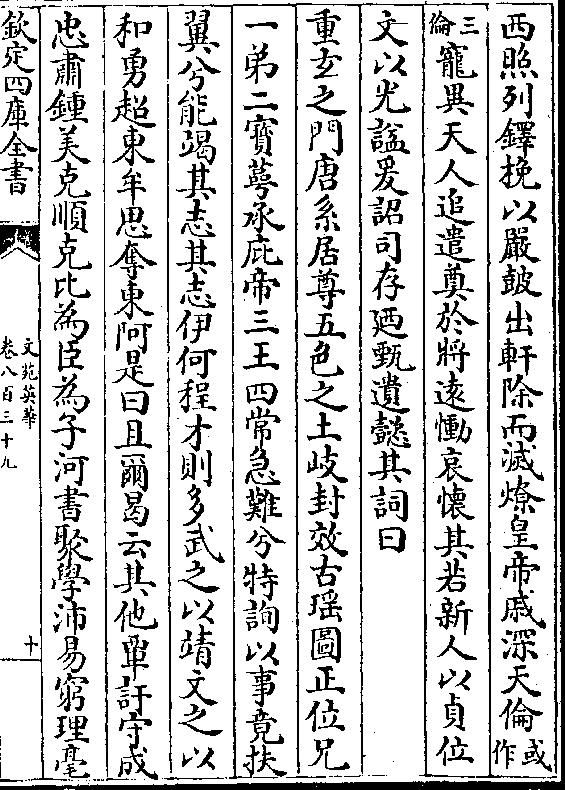 西照列鐸挽以嚴鼓出軒除而滅燎皇帝戚深天倫或作
三倫寵異天人追遣奠於將遠慟哀懷其若新人以貞位
文以光諡爰詔司存廼甄遺懿其詞曰
重玄之門唐系居尊五色之土歧封效古瑶圖正位兄
一弟二寳萼承庇帝三王四常急難兮特詢以事竟扶
翼兮能竭其志其志伊何程才則多武之以靖文之以
和勇超東牟思奪東阿是曰且爾曷云其他單訏守成
忠肅鍾美克順克比為臣為子河書聚學沛易窮理毫
欽定四庫全書
文苑英華
卷八百三十九
十